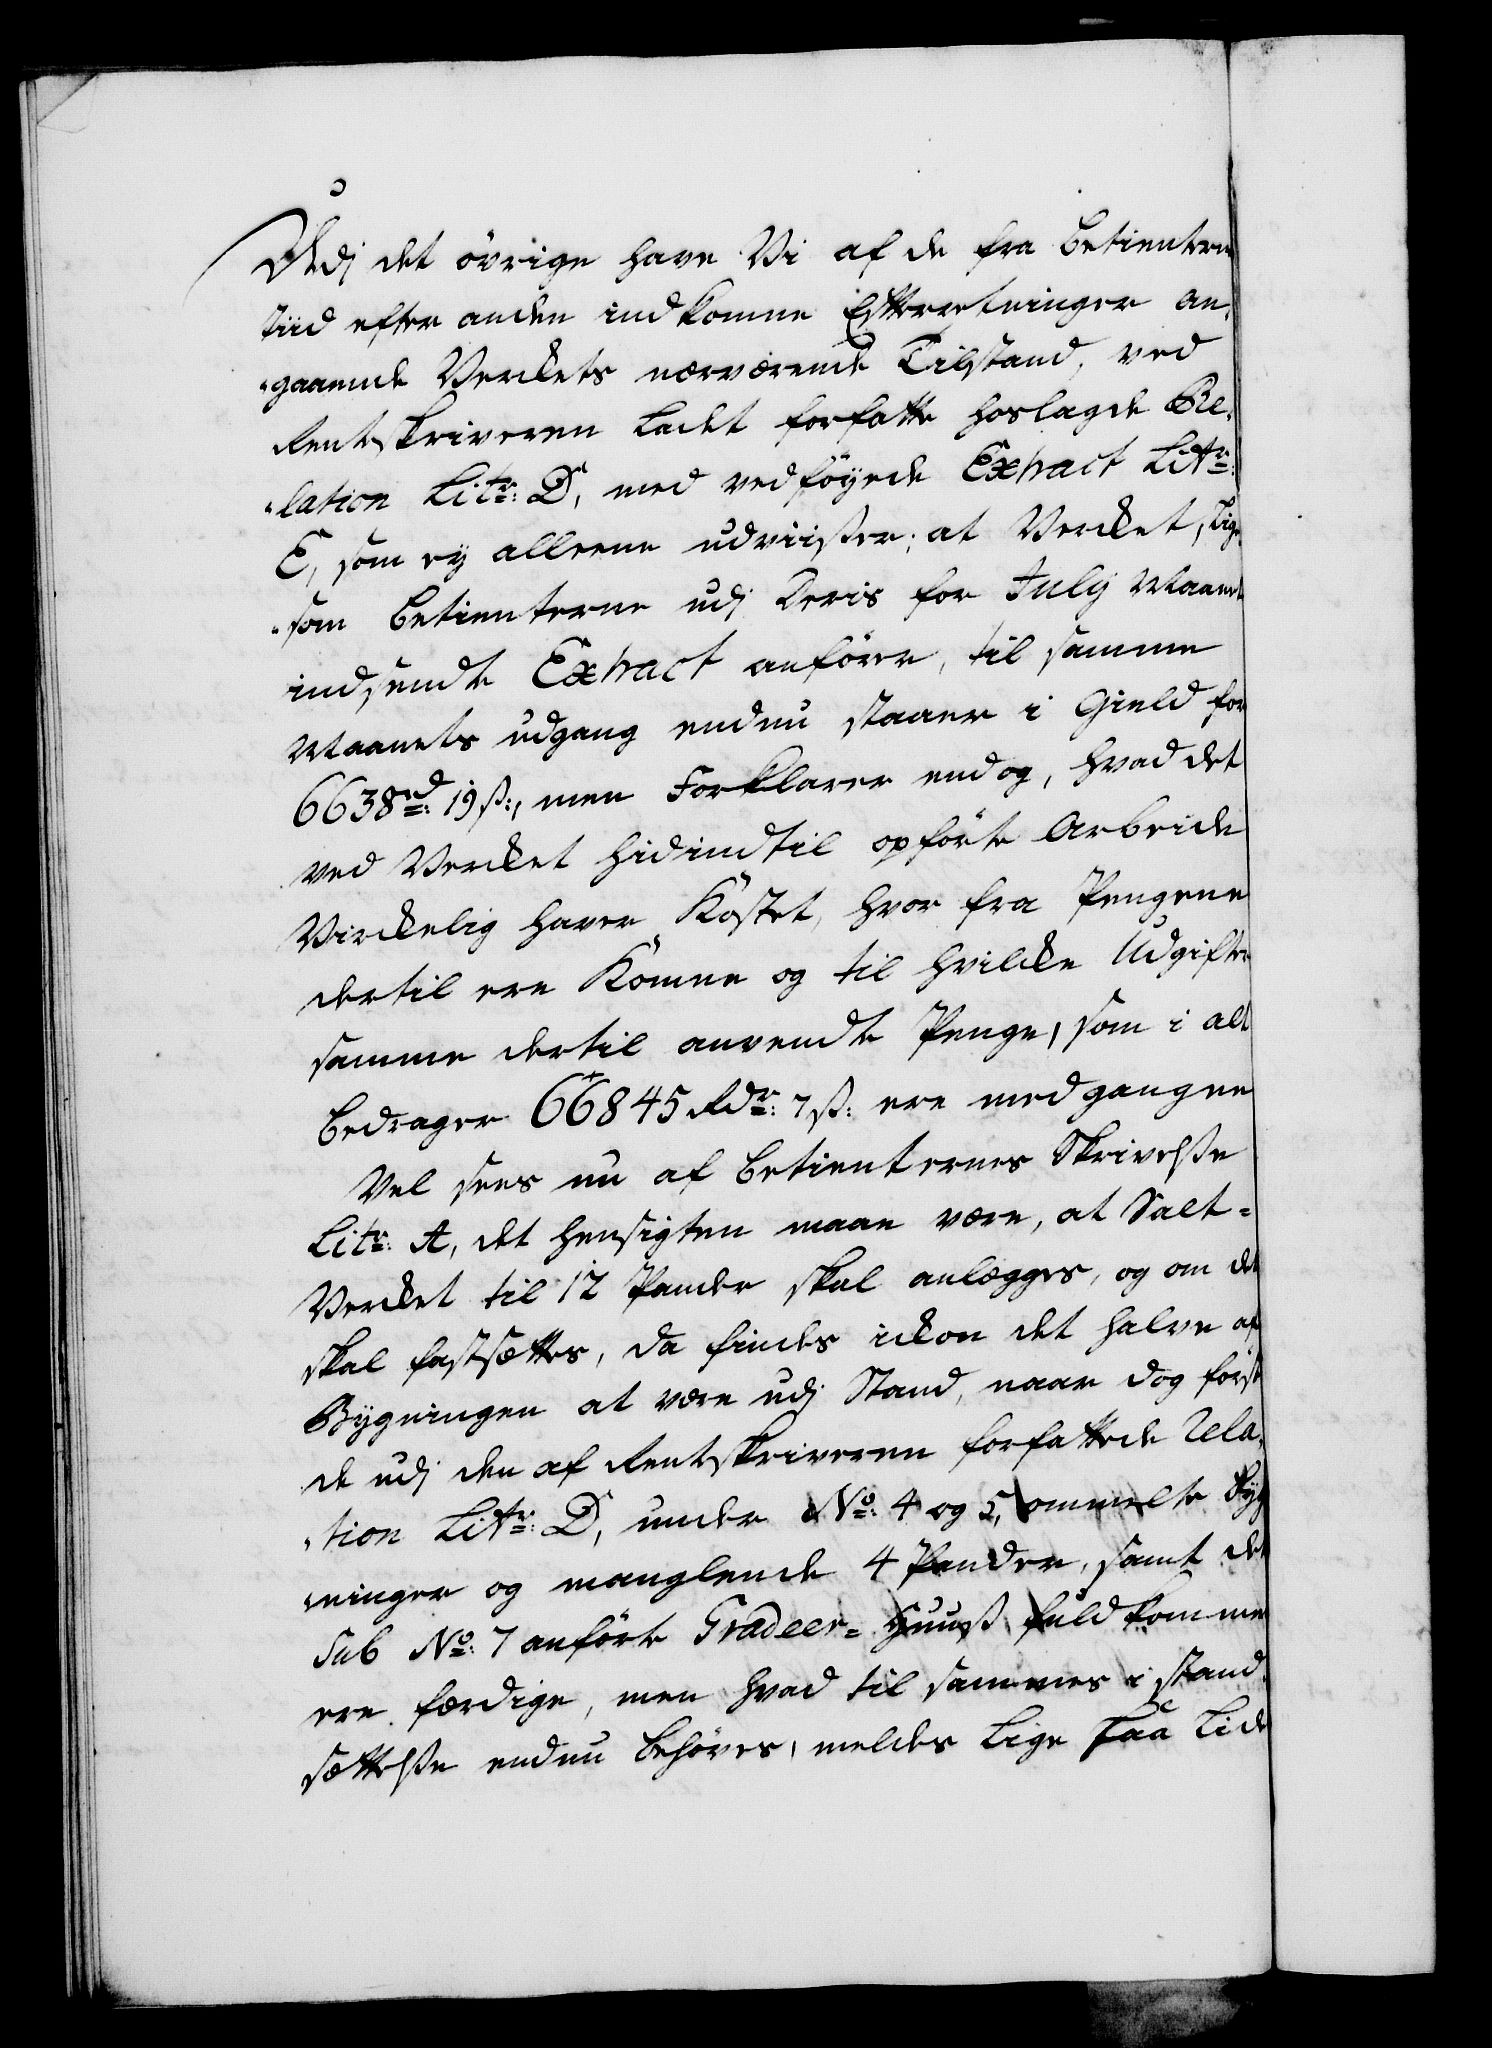 Udj det övrige have Vi af de fra Betienterne
Tiid efter anden indkomne Efterretninger an,
„gaaende Verkets nærværende Tilstand, ved
Rentskriveren Ladet forfatte hoslagde Re,
„lation Litr: D, med vedföyede Extract Littr:
E, som ey alleene udviiser; at Verket, Lige
„som Betienterne udj Deris for July Maaned
indsendte Extract anförer, til samme
Maanets udgang endnu staaer i Gield for
6638rd: 19 ß:, men Forklarer endog, hvad det
ved Verket hidindtil opförte Arbeide
Virkelig haver Kostet, hvor fra Pengene
dertil ere Komne og til hvilke Udgifter
samme dertil anvendte Penge, som i alt
bedrager 66845 Rdr: 7 ß: ere medgangne
Vel sees nu af Betienternes Skrivelse
Litr: A, det hensigten maae være, at Salt=
Verket til 12 Pander skal anlægges, og om det
skal fastsættes, da findes ickon det halve af
Bygningen at være udj Stand, naar dog förste
de udj den af Rentskriveren forfattede Rela,
„tion Littr: D, under No: 4 og 5, ommelte Byg
„ninger og manglende 4 Pander, samt det
sub No: 7 anförte Gradeer= Huuß fuldkomme
ere færdige, men hvad til sammes i stand
sættelse endnu behöves, meldes Lige saa Lidet